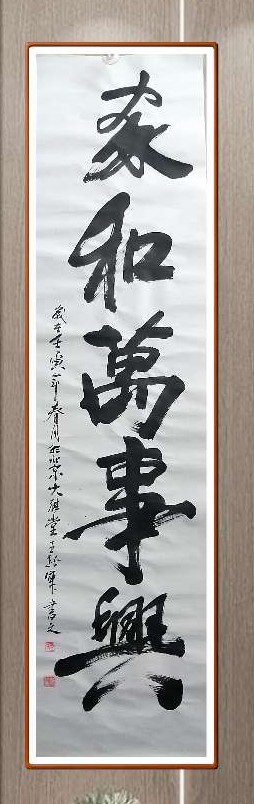 家和萬事興
歲在壬寅年春月於北京大雅堂王乾軍書之